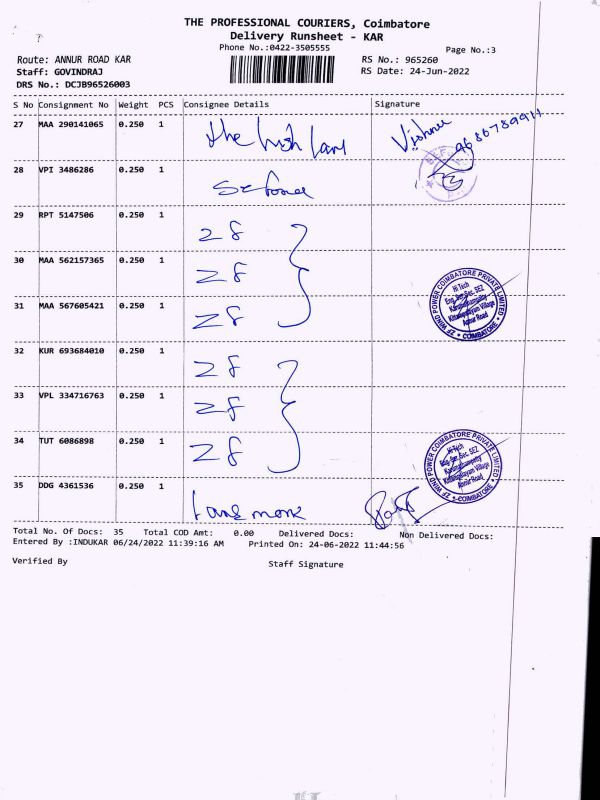 THE PROFESSIONAL COURIERS, Coimbatore
Delivery Runsheet - KAR
Phone No.:0422-3505555
Page No.:3
Route: ANNUR ROAD KAR
RS No.: 965260
Staff: GOVINDRAJ
RS Date: 24-Jun-2022
DRS No.: DCJB96526003
S No Consignment No Weight PCS Consignee Details Signature
27 MAA 290141065 0.250 1 the Vishnu
28 VPI 3486286 0.250 1
29 RPT 5147506 0.250 1 ZF
30 MAA 562157365 0.250 1 ZF
31 MAA 567605421 0.250 1 ZF
ZF WIND POWER COIMBATORE PRIVATE LIMITED
* COIMBATORE *
Hi Tech
Eng. Ser. Sec. SEZ
Kittampalayam Village
Annur Road
32 KUR 693684010 0.250 1 ZF
33 VPL 334716763 0.250 1 ZF
34 TUT 6086898 0.250 1 ZF
ZF WIND POWER COIMBATORE PRIVATE LIMITED
* COIMBATORE *
Hi Tech
Eng. Ser. Sec. SEZ
Kittampalayam Village
Annur Road
35 DDG 4361536 0.250 1
Total No. Of Docs: 35 Total COD Amt: 0.00 Delivered Docs: Non Delivered Docs:
Entered By :INDUKAR 06/24/2022 11:39:16 AM Printed On: 24-06-2022 11:44:56
Verified By Staff Signature